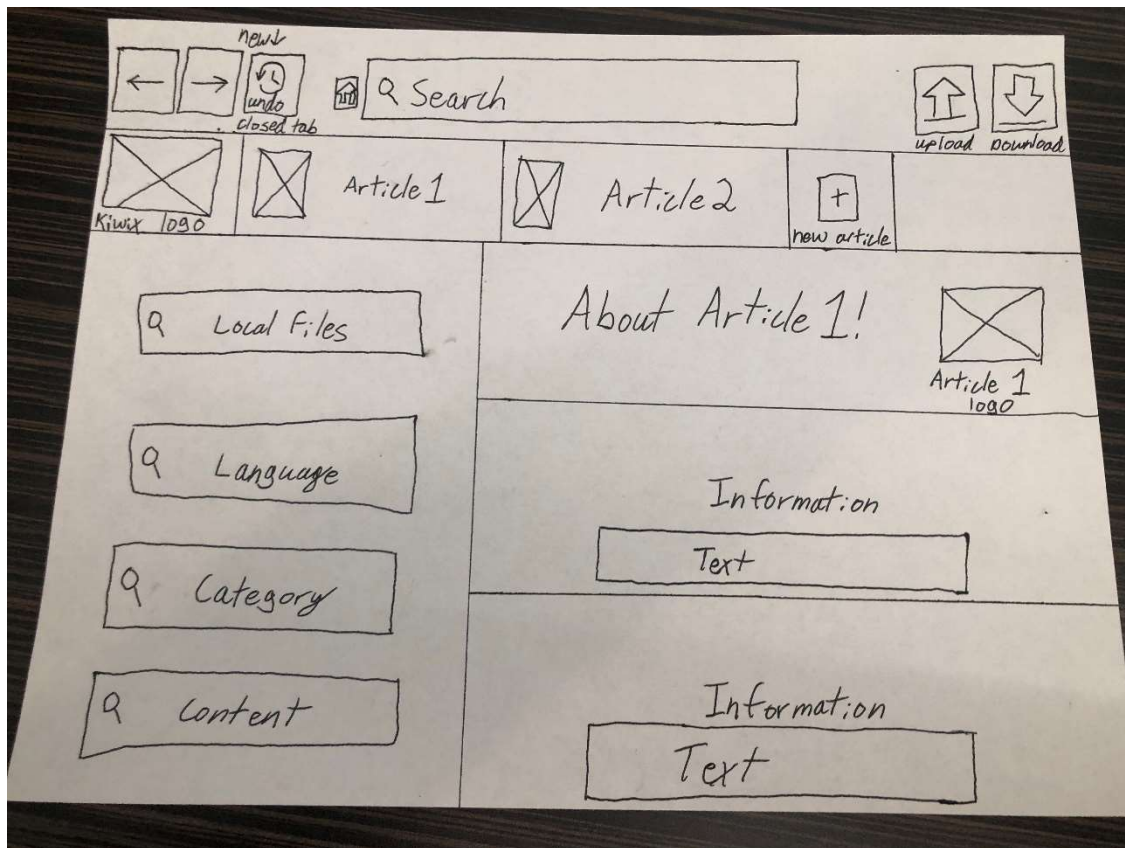 new↓
undo
closed tab
Search
upload
Download
Kiwix logo
Article 1
Article 2
+
new article
Local Files
Language
Category
Content
About Article 1!
Article 1
logo
Information
Text
Information
Text